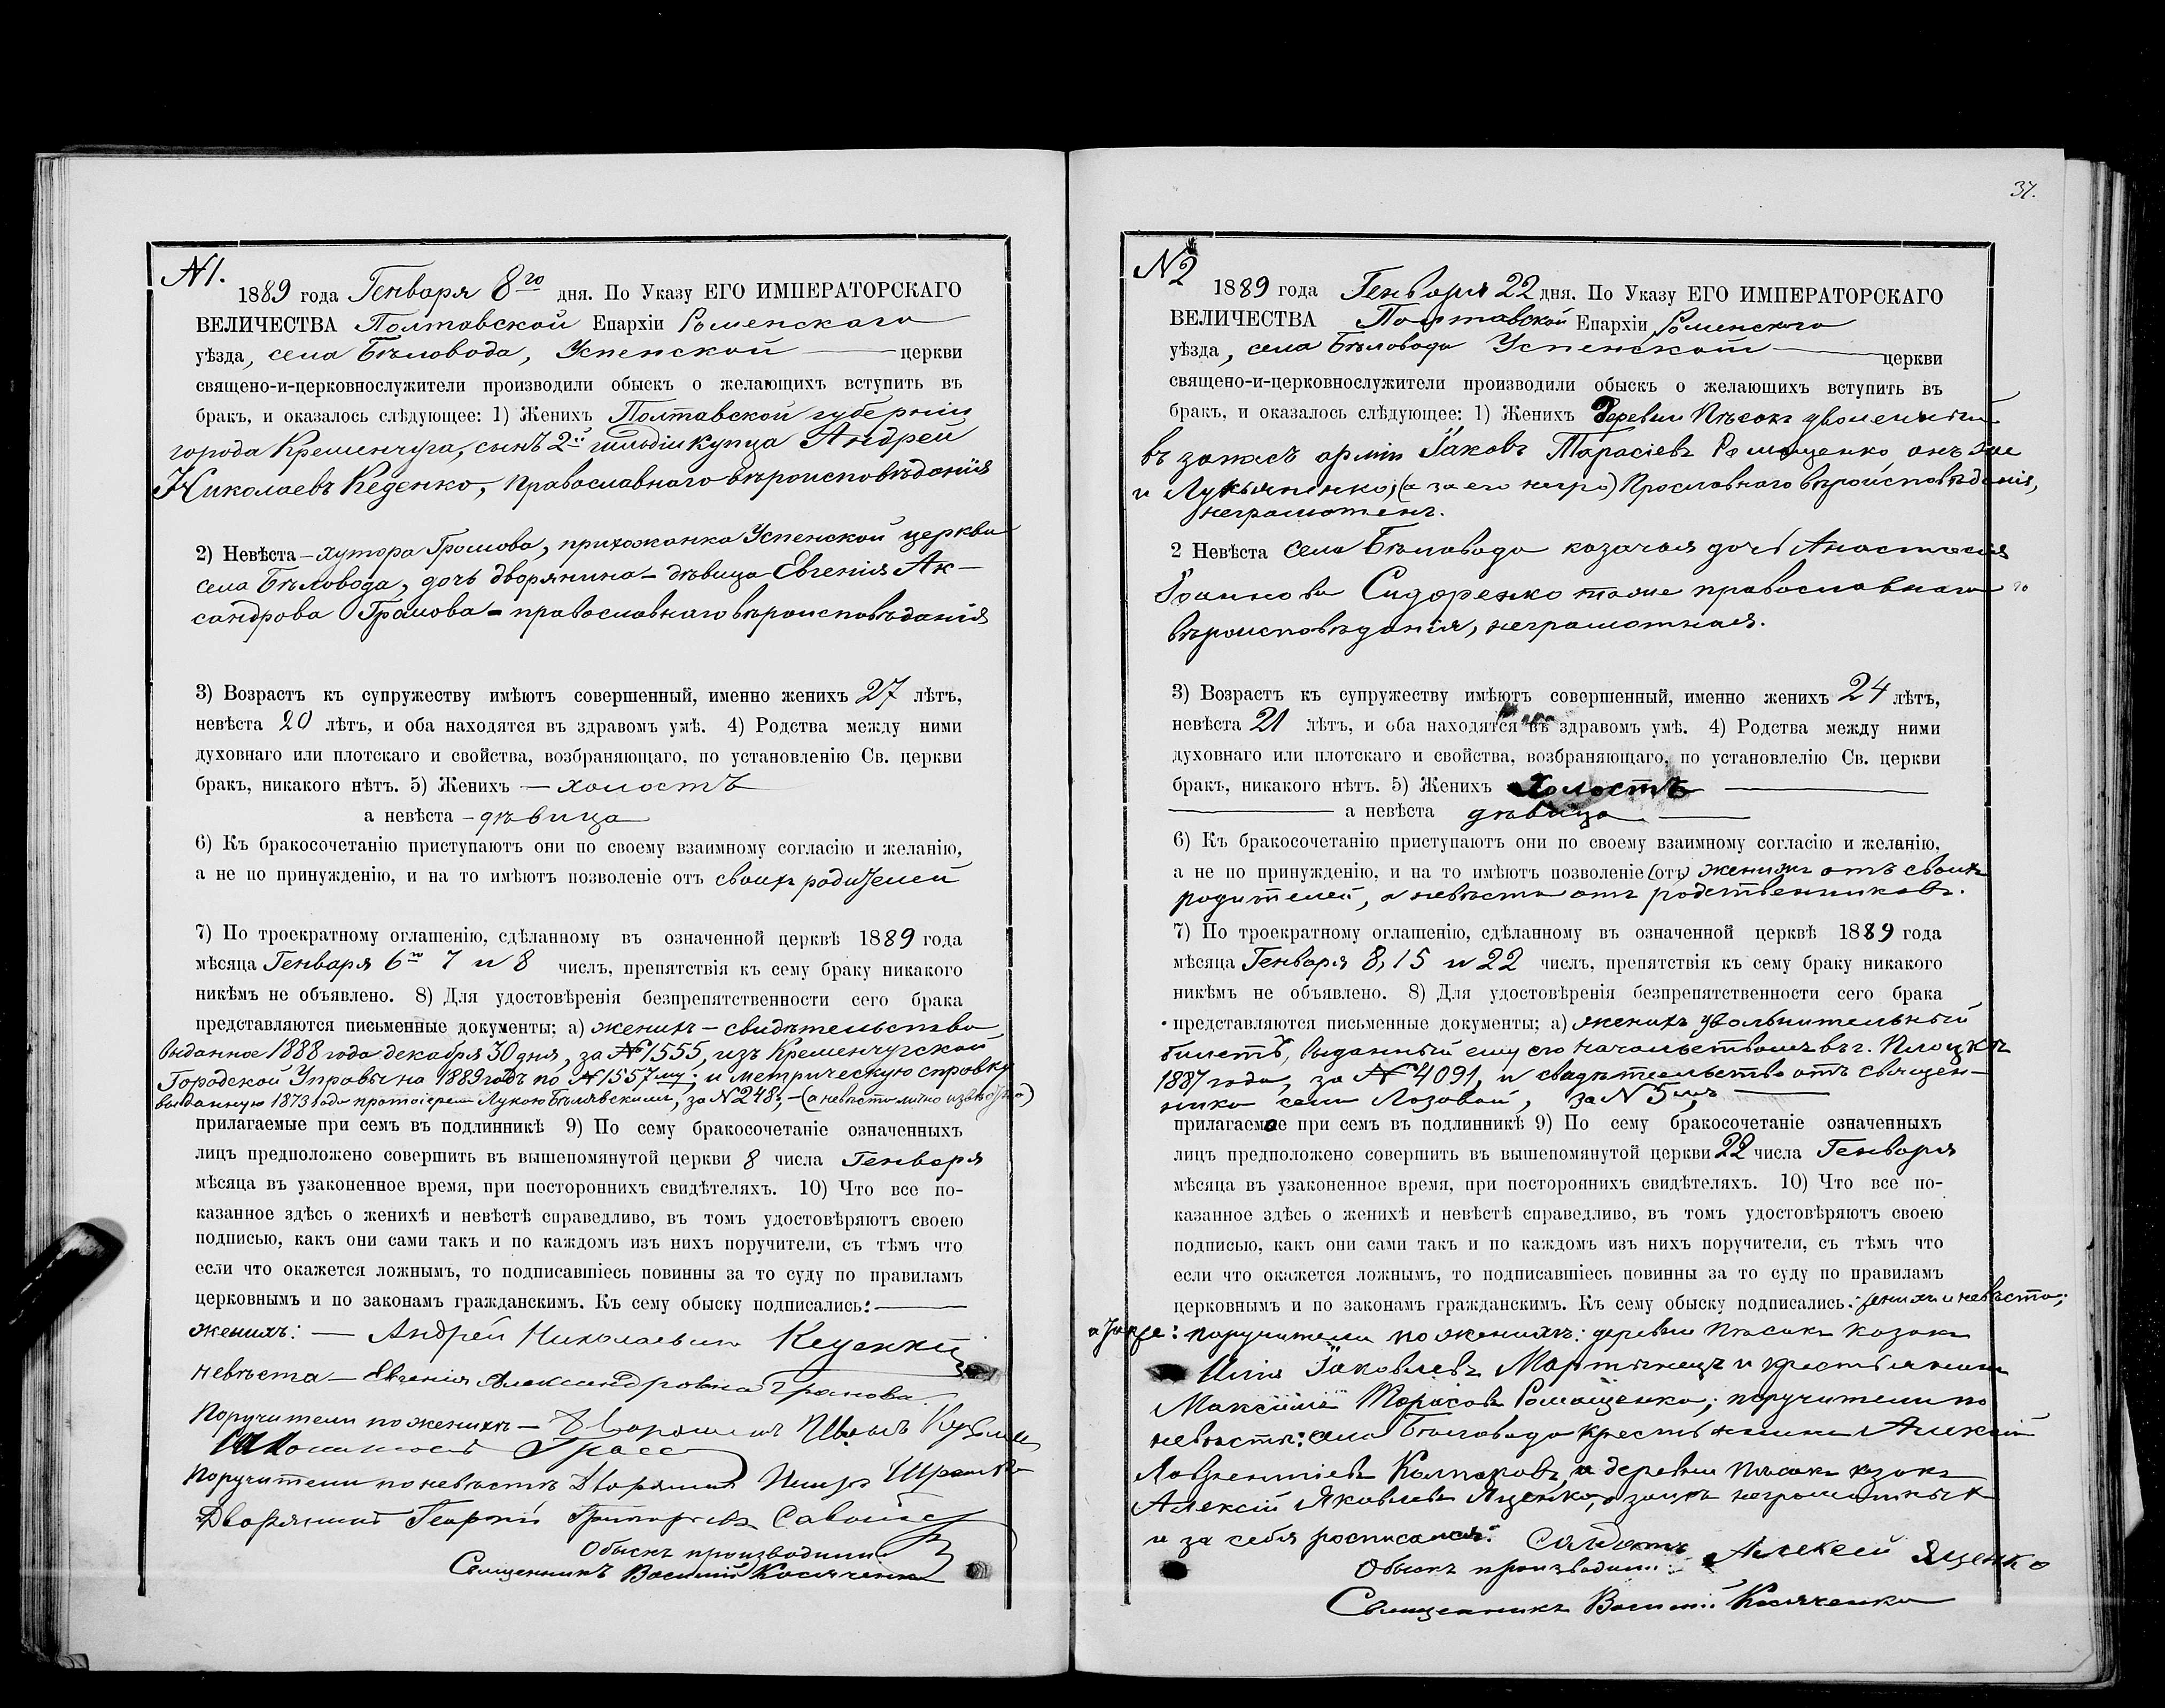 №1.
1889 года Генваря 8го дня. По Указу ЕГО ИМПЕРАТОРСКАГО
ВЕЛИЧЕСТВА Полтавской Епархіи Роменскаго
уѣзда, села Бѣловода, Успенской церкви
священо-и-церковнослужители производили обыскъ о желающихъ вступить въ
бракъ, и оказалось слѣдующее: 1) Женихъ Полтавской губерніи
города Кременчуга, сынъ 2й гильдіи купца Андрей
Николаевъ Кеденко, православнаго вѣроисповѣданія
2) Невѣста – хутора Громова, прихожанка Успенской церкви
села Бѣловода, дочь дворянина – дѣвица Евгенія Ак–
сандрова Грамова – православнаго вѣроисповѣданія
3) Возрастъ къ супружеству имѣютъ совершенный, именно женихъ 27 лѣтъ,
невѣста 20 лѣтъ, и оба находятся въ здравомъ умѣ. 4) Родства между ними
духовнаго или плотскаго и свойства, возбраняющаго, по установленію Св. церкви
бракъ, никакого нѣтъ. 5) Женихъ – холостъ
а невѣста – дѣвица
6) Къ бракосочетанію приступаютъ они по своему взаимному согласію и желанію,
а не по принужденію, и на то имѣютъ позволеніе отъ своихъ родителей
7) По троекратному оглашенію, сдѣланному въ означенной церквѣ 1889 года
мѣсяца Генваря 6го 7 и 8 числъ, препятствія къ сему браку никакого
никѣмъ не объявлено. 8) Для удостовѣренія безпрепятственности сего брака
представляются письменные документы: а) женихъ – свидѣтельство
выданное 1888 года декабря 30 дня, за №1555, изъ Кременчугской
Городской Управы на 1889 годъ по №1557му; и метрическую справку
выданную 1873 года протоіереем Лукою Бѣлявскимъ, за №248; – (а невѣста лично извѣстна)
прилагаемые при семъ въ подлинникѣ 9) По сему бракосочетаніе означенныхъ
лицъ предположено совершить въ вышепомянутой церкви 8 числа Генваря
мѣсяца въ узаконенное время, при постороннихъ свидѣтеляхъ. 10) Что все по-
казанное здѣсь о женихѣ и невѣстѣ справедливо, въ томъ удостовѣряютъ своею
подписью, какъ они сами такъ и по каждомъ изъ нихъ поручители, съ тѣмъ что
если что окажется ложнымъ, то подписавшіесь повинны за то суду по правиламъ
церковнымъ и по законамъ гражданскимъ. Къ сему обыску подписались:
женихъ: – Андрей Николаевъ
невѣста – Евгенія Александровна Грамова
Поручители по женихѣ – Дворянинъ Иванъ
Поручители по невѣстѣ Дворянин
Дворянинъ Георгій Григорьевъ
Обыскъ производили
Священникъ Василій Косяченко
37.
№2
1889 года Генваря 22 дня. По Указу ЕГО ИМПЕРАТОРСКАГО
ВЕЛИЧЕСТВА Полтавской Епархіи Роменскаго
уѣзда, села Бѣловода Успенской церкви
священо-и-церковнослужители производили обыскъ о желающихъ вступить въ
бракъ, и оказалось слѣдующее: 1) Женихъ деревни Пѣсокъ уволенный
въ запасъ арміи Іаковъ Тарасіевъ Ромащенко онъ же
и Лукьяненко, православнаго вѣроисповѣданія,
неграмотенъ.
2 Невѣста села Бѣловода казачья дочь Анастасія
Іоаннова Сидоренко тоже православнаго
вѣроисповѣданія, неграмотная.
3) Возрастъ къ супружеству имѣютъ совершенный, именно женихъ 24 лѣтъ,
невѣста 21 лѣтъ, и оба находятся въ здравомъ умѣ. 4) Родства между ними
духовнаго или плотскаго и свойства, возбраняющаго, по установлелію Св. церкви
бракъ, никакого нѣтъ. 5) Женихъ холостъ
а невѣста дѣвица
6) Къ бракосочетанію приступаютъ они по своему взаимному согласію и желанію,
а не по принужденію, и на то имѣютъ позволеніе (отъ) женихъ отъ своихъ
родителей, а невѣста отъ родственниковъ.
7) По троекратному оглашенію, сдѣланному въ означенной церквѣ 1889 года
мѣсяца Генваря 8, 15 и 22 числъ, препятствія къ сему браку никакого
никѣмъ не объявлено. 8) Для удостовѣренія безпрепятственности сего брака
представляются письменные документы: а) женихъ увольнительный
билетъ, выданный ему его начальствомъ въ г. Плоцкѣ
1887 года, за №4091, и свидѣтельство отъ священ–
ника села Лозовой, за №5мъ
прилагаемое при семъ въ подлинникѣ 9) По сему бракосочетаніе означенныхъ
лицъ предположено совершить въ вышепомянутой церкви 22 числа Генваря
мѣсяца въ узаконенное время, при постороннихъ свидѣтеляхъ. 10) Что все по-
казанное здѣсь о женихѣ и невѣстѣ справедливо, въ томъ удостовѣряютъ своею
подписью, какъ они сами такъ и по каждомъ изъ нихъ поручители, съ тѣмъ что
если что окажется ложнымъ, то подписавшіесь повинны за то суду по правиламъ
церковнымъ и по законамъ гражданскимъ. Къ сему обыску подписались: женихъ и невѣста;
поручители по женихѣ: деревни Пѣсокъ козакъ
Илія Іаковлевъ Мартынецъ и крестьянинъ
Максимъ Тарасовъ Ромащенко; поручители по
невѣстѣ: села Бѣловода крестьянинъ Алексій
Лаврентіевъ Колпаковъ, и деревни Пѣсокъ козакъ
Алексій Яковлевъ Яценко, а за нихъ неграмотныхъ
и за себя росписался: Солдатъ Алексей Яценко
Обыскъ производили:
Священникъ Василій Косяченко